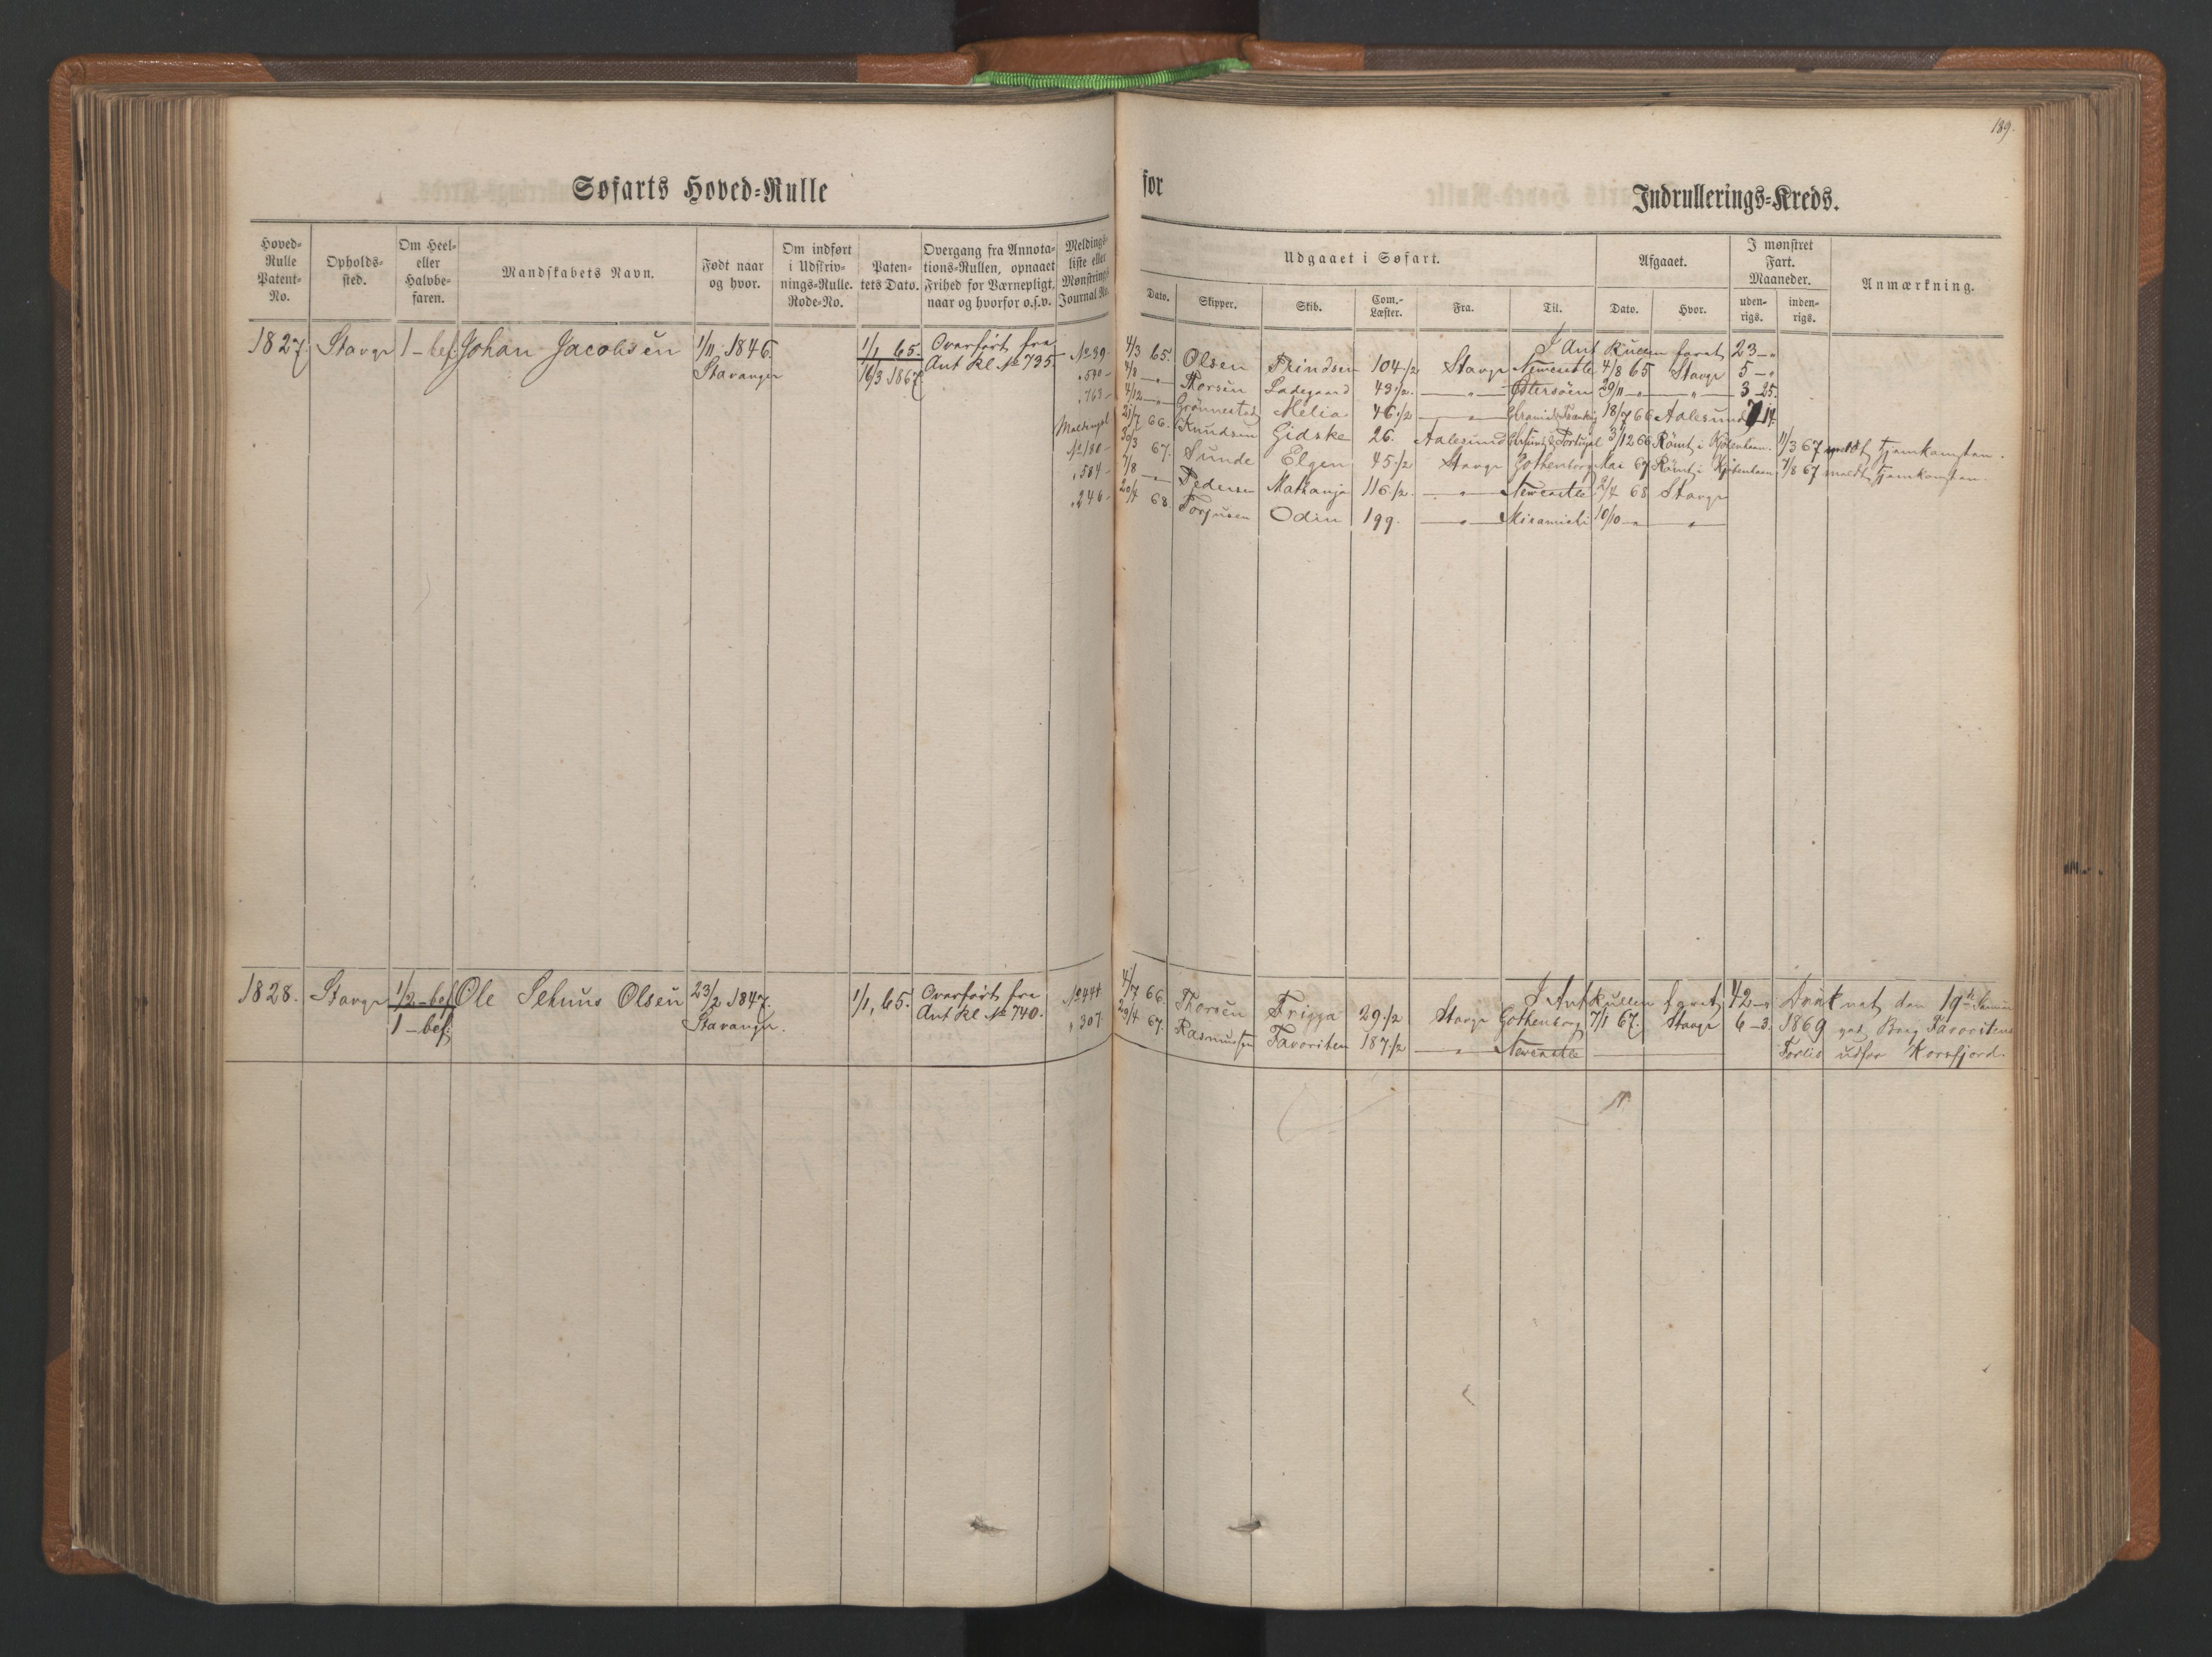 189.
Søfarts Hoved-Rulle
for
Indrullerings-Kreds.
Hoved-Rulle Patent-No.
Opholds-sted.
Om Heel- eller Halvbe-faren.
Mandskabets Navn.
Født naar og hvor.
Om indført i Udskriv-nings-Rulle. Rode-No.
Paten-tets Dato.
Overgang fra Annota-tions-Rullen, opnaaet Frihed for Værnepligt, naar og hvorfor o.s.v.
Meldings-liste eller Mønstrings Journal No.
Udgaaet i Søfart.
Afgaaet.
I mønstret Fart. Maaneder.
Anmærkning.
Dato.
Skipper.
Skib.
Com.-Læster.
Fra.
Til.
Dato.
Hvor.
uden-rigs.
inden-rigs.
1827. Stavgr 1-bef. Johan Jacobsen 1/11 1846. 1/1 65. Overført fra
Stavanger 16/3 1867. Ant Rl No 735.
I Ant Rullen faret 23-"
No 39- 4/3 65. Olsen Prindsen 104 1/2 Stavgr Newcastle 4/8 65 Stavgr 5-"
" 590- 4/8 -"- Thorsen Ladegaard 43 1/2 -"- Østersöen 29/11 -"- -"- 3-25
" 763- 4/12 -"- Grönnestad Melia 46 1/2 -"- 18/7 66 Aalesund 7 14
Maltengst 21/7 66. Knudsen Gidske 26. Aalesund Portugal 3/12 66 Römt i Kjøbenhavn. 11/3 67 meldt Hjemkomsten.
No 180- 30/3 67. Sunde Elgen 45 1/2 Stavgr Gothenborg Mai 67 Römt i Kjøbenhavn 7/8 67 meldt Hjemkomsten.
" 504- 7/8 -"- Pedersen Nathanja 116 1/2 -"- Newcastle 2/4 68 Stavgr
" 246- 20/4 68. Torjusen Odin 199. -"- Miramichi 10/10 -"- -"-
1828. Stavgr 1/2-bef. Ole Sehuus Olsen 23/2 1847. 1/1 65. Overført fra
1-bef. Stavanger. Ant Rl No 740.
I Ant Rullen faret 42-" Druknet den 19de
No 444 4/7 66. Thorsen Frigga 29 1/2 Stavgr Gothenborg 7/1 67. Stavgr 6-3. 1869 ved Brig Favoritens
" 307. 29/4 67. Rasmussen Favoriten 187 1/2 -"- Newcastle Forlis udfor Korsfjord.